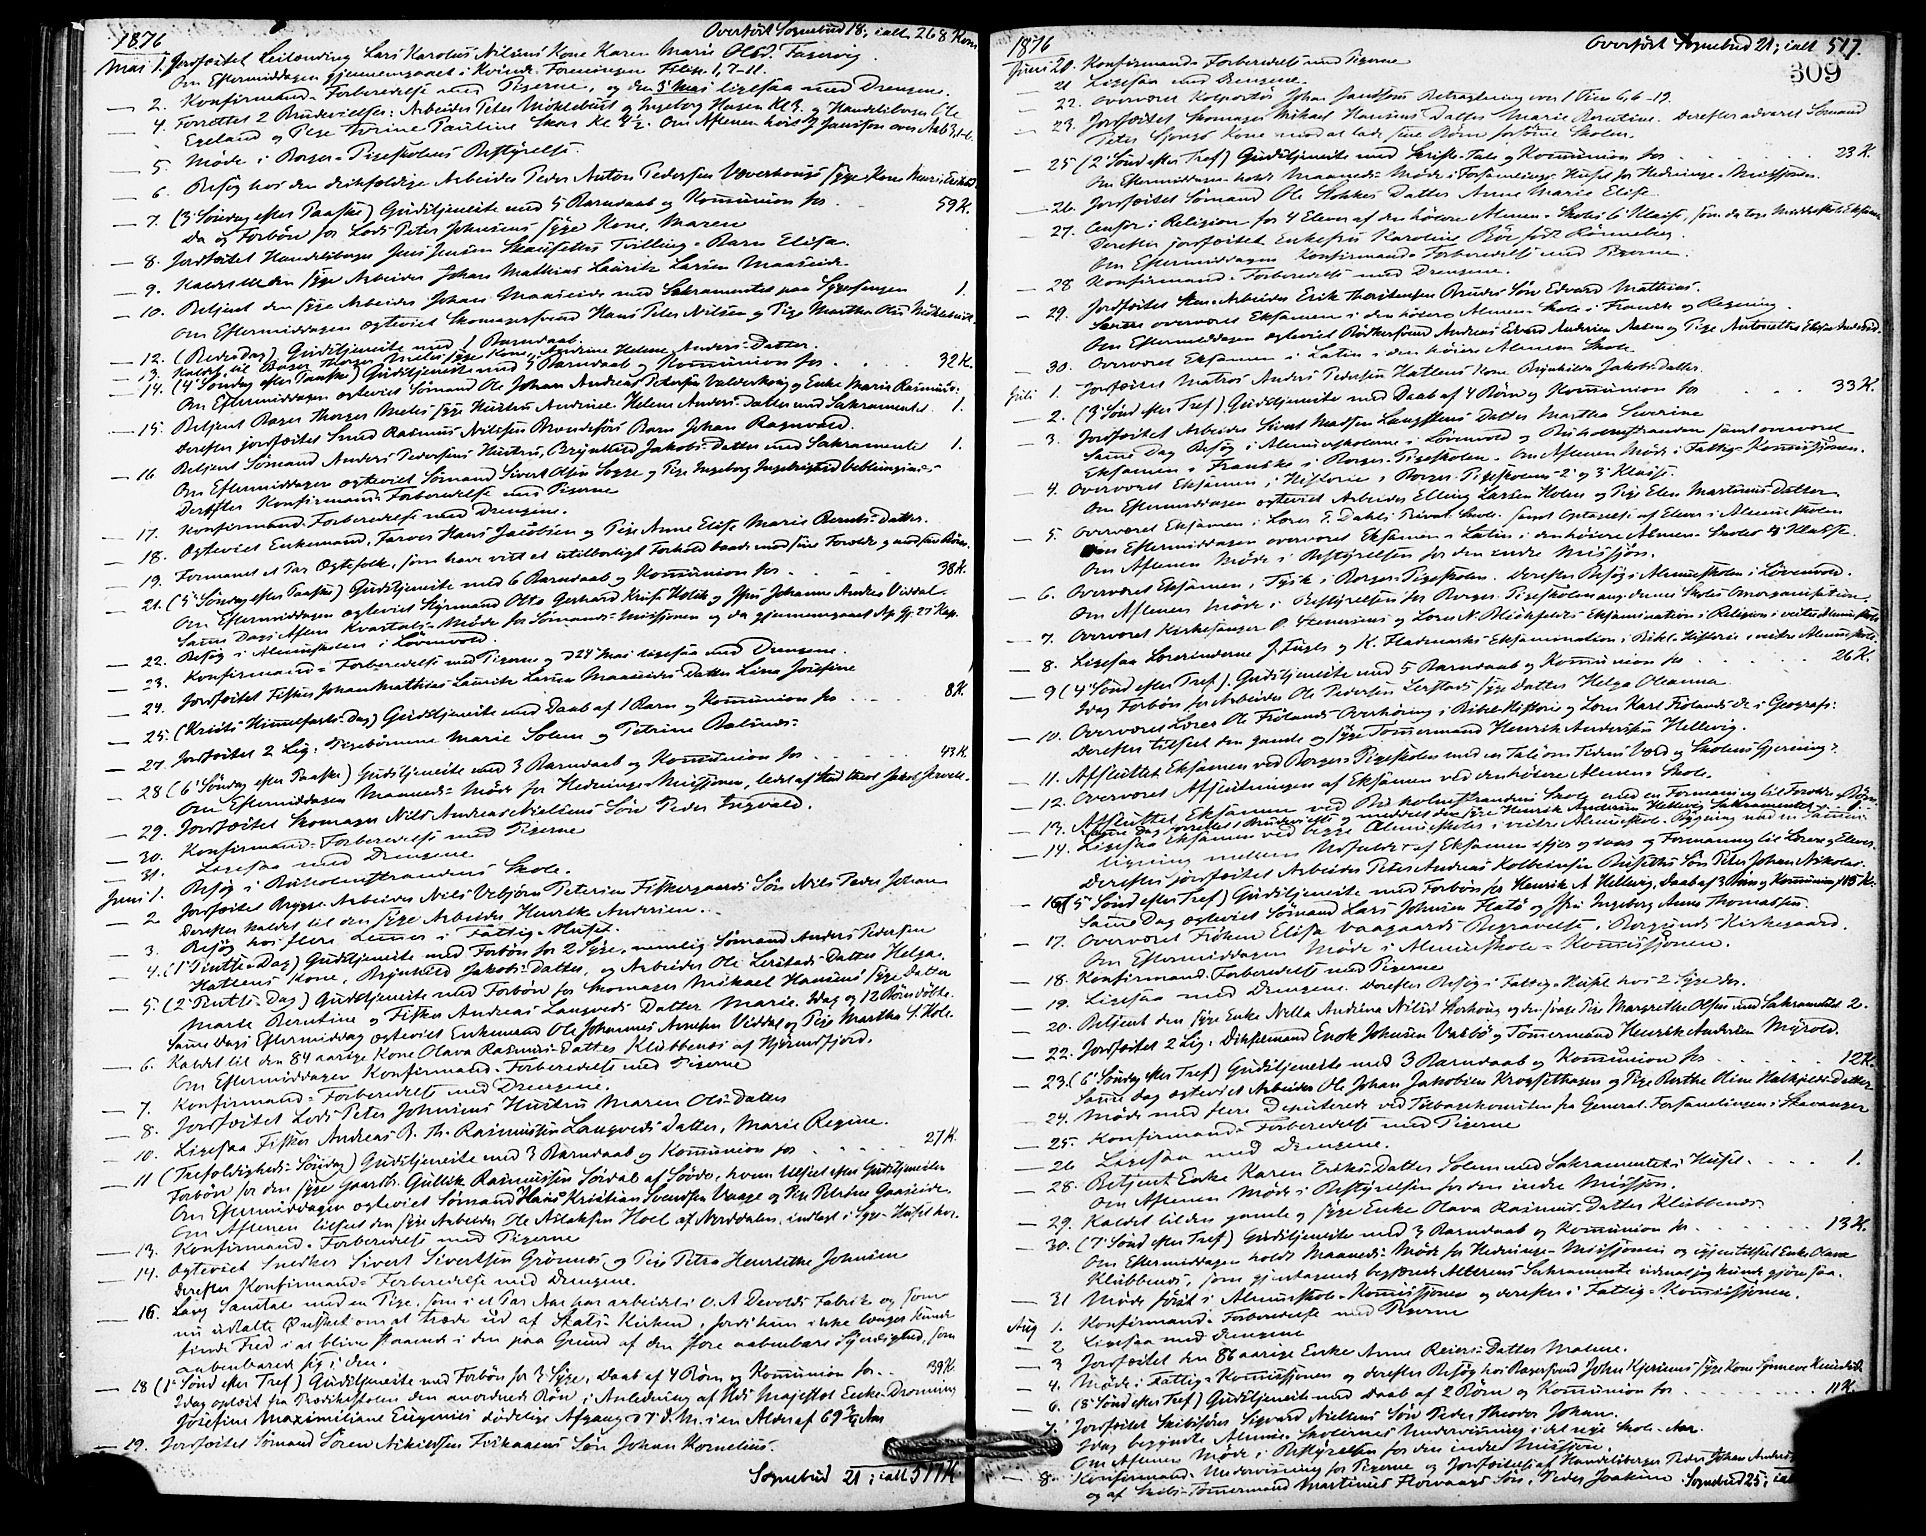 1876 Overført Sognebud 18; ialt 268 Kom
Mai 1. Jordfæstet Leilending Lars Karolus Nilsens Kone Karen Marie Olsd. Fagervig.
Om Eftermiddagen gjennemgaaet i Kvinde-Foreningen Filip. 1, 7-11.
— 2. Konfirmand-Forberedelse med Pigerne, og den 3 Mai ligesaa med Drengene.
— 4. Forrettet 2 Brudevielser: Arbeider Peter Mikleb[ust] og Ingeborg Hansen Kl 3. og Handelsborger Ole
Egeland og Pige Pauline Kl 4½. Om Aftenen
— 5. Møde i Borger-Pigeskolens Bestyrelse.
— 6. Besøg hos den Arbeider Peder Anton Pedersen syge Kone
— 7. (3 Søndag efter Paaske) Gudstjeneste med 5 Barndaab og Kommunion for 59 K.
Da og Forbøn for Lods Peter Johnsens syge Kone, Maren
— 8. Jordfæstet Handelsborger Jens Jensen Tvilling-Barn Elisa.
— 9. Kaldet til den syge Arbeider Johan Mathias Lauritz Larsen Maaseide
— 10. Betjent den syge Arbeider Johan Maaseide med Sakramentet paa Sygesengen 1.
Om Eftermiddagen ægteviet Skomagersvend Hans Peter Nilsen og Pige Martha Olsd
— 12. (Bededag) Gudstjeneste med 1 Barndaab.
— 13. Kaldet til Bager syge Kone, Andrine Helene Anders-Datter.
— 14. (4 Søndag efter Paaske) Gudstjeneste med 5 Barndaab og Kommunion for 32 K.
Om Eftermiddagen ægteviet Sømand Ole Johan Andreas Petersen Valderhaug og Enke Marie Rasmus-
— 15. Betjent Bager syge Hustru Andrine Helene Anders-Datter med Sakramentet 1.
Derefter jordfæstet Smed Rasmus Nilssen Barn Johan Ragnvald.
— 16 Betjent Sømand Anders Pedersens Hustru, Brynhild Jakobs-Datter med Sakramentet 1.
Om Eftermiddagen ægteviet Sømand Sivert Olsen og Pige Ingeborg
Derefter Konfirmand-Forberedelse med Pigerne
— 17. Konfirmand-Forberedelse med Drengene.
— 18. Ægteviet Enkemand, Farver Hans Jacobsen og Pige Anne Elise Marie Bernts-Datter.
— 19. Formanet et Par Ægtefolk, som have vist et utilbørligt Forhold baade mod sine Forældre og mod sine Børn.
— 21. (5 Søndag efter Paaske) Gudstjeneste med 6 Barndaab og Kommunion for 38 K.
Om Eftermiddagen ægteviet Styrmand Otto Gerhard Holck og Johanne Andrea Viddal.
Samme Dags Aften Kvartals-Møde for Sømands-Missionen og da gjennemgaaet Ap. Gj. 27 Kap.
— 22. Besøg i Almueskolen i Lørenvold.
— 23. Konfirmand-Forberedelse med Pigerne og d 24 Mai ligesaa med Drengene.
— 24. Jordfæstet Fisker Johan Mathias Lauritz Larsen Maaseides Datter Lina Josefine 1
— 25. (Kristi Himmelfarts-Dag) Gudstjeneste med Daab af 1 Barn og Kommunion for 8 K.
— 27. Jordfæstet 2 Lig: Pigebørnene Marie Solem og Petrine
— 28 (6 Søndag efter Paaske) Gudstjeneste med 3 Barndaab og Kommunion for 43 K.
Om Eftermiddagen Maaneds-Møde for Hednings-Missionen, ledet af
— 29. Jordfæstet Skomager Nils Andreas Nielsens Søn Peder Ingvald.
— 30. Konfirmand-Forberedelse med Pigerne
— 31. Ligesaa med Drengene
Juni 1. Besøg i Buholmstrandens Skole.
— 2 Jordfæstet Brygge-Arbeider Nils Vebjørn Petersen Fiskergaards Søn Nils Peder Johan
Derefter kaldet til den syge Arbeider Henrik Andersen.
— 3. Besøg hos flere Lemmer i Fattig-Huset.
— 4. (1 Pintse-Dag) Gudstjeneste med Forbøn for 2 Syge, nemlig Sømand Anders Pedersen
Hatlens Kone, Brynhild Jakobs-Datter, og Arbeider Ole Lerstads Datter Helga.
— 5. (2 Pintse-Dag) Gudstjeneste med Forbøn for Skomager Mikael Hansens syge Datter
Marte Berntine og Fisker Andreas Langvads Datter Marie. Idag og 12 Børn døbte.
Samme Dags Eftermiddag ægteviet Enkemand Ole Johannes Viddal og Pige Martha
— 6. Kaldet til den 84 aarige Kone Olava Rasmus-Datter Klubbenes af Hjørundfjord.
Om Eftermiddagen Konfirmand-Forberedelse med Pigerne
— 7. Konfirmand-Forberedelse med Drengene.
— 8. Jordfæstet Lods Peter Johnsens Hustru Maren Ols-Datter
— 10. Ligesaa Fisker Andreas B. Th. Rasmussen Langvads Datter, Marie Regine.
— 11 (Trefoldigheds-Søndag) Gudstjeneste med 3 Barndaab og Kommunion for 27 K.
Forbøn for den syge Gaardb. Gullik Rasmussen Sørdal af Søvde, hvem tilseet efter Gudstjenesten
Om Eftermiddagen ægteviet Sømand Hans Kristian Svendsen Vaage og Pige Petrine Gaaseide.
Om Aftenen tilseet den syge Arbeider Ole Aslaksen Hoel af Norddalen, indlagt i Syge-Huset her.
— 13. Konfirmand-Forberedelse med Pigerne
— 14. Ægteviet Snedker Sivert Sivertsen Grønnes og Pige Petra Henriette Johnsen
Derefter Konfirmand-Forberedelse med Drengene.
— 16. Lang Samtale med en Pige, som i et Par Aar har arbeidet i O. A Devolds Fabrik og som
nu udtalte Ønsket om at træde ud af Stats-Kirken, fordi hun ikke længer kunde
finde Fred i at blive staaende i den paa Grund af den store aabenbare Syndighed, som
aabenbarede sig i den.
— 18 (1 Sønd efter Tref) Gudstjeneste med Forbøn for 3 Syge, Daab af 4 Børn og Kommunion for 39 K.
Idag oplæst fra Prædikestolen den anordnede Bøn, i Anledning af Hds Majestæt Enke-Dronning
Josefine Maximiliane Eugenies dødelige Afgang d 7 d. M. i en Alder af 69 Aar
— 19. Jordfæstet Sømand Søren Fiskaaens Søn Johan Kornelius.
Sognebud 21; ialt 517 K
1876 Overført Sognebud 21; ialt 517.
309
Juni 20. Konfirmand-Forberedelse med Pigerne
— 21 Ligesaa med Drengene.
— 22. Overværet Kolportør Johan Betragtning over 1 Tim 6, 6-19.
— 23. Jordfæstet Skomager Mikael Hansens Datter Marie Berntine. Derefter advaret Sømand
Peter Kone mod at lade sine Børn forsømme Skolen.
— 25 (2 Sønd efter Tref) Gudstjeneste med Skrifte-Tale og Kommunion for 23 K.
Om Eftermiddagen holdt Maaneds-Møde i Forsamlings-Huset for Hednings-Missionen.
— 26. Jordfæstet Sømand Ole Datter Anne Marie Elise
— 27. Censor i Religion for 4 Elever af den høiere Almen-Skoles 6 Klasse, som da tog Middelskole Eksamen
Derefter jordfæstet Enkefru Karoline Bøe født Rønneberg.
Om Eftermiddagen Konfirmand-Forberedelse med Pigerne.
— 28 Konfirmand-Forberedelse med Drengene.
— 29. Jordfæstet Sten-Arbeider Erik Thorstensen Bruders Søn Edvard Mathias.
Samme overværet Eksamen i den høiere Almen-Skole i Fransk og Regning.
Om Eftermiddagen ægteviet Bødkersvend Andreas Edvard Andersen Aasen og Pige Antonette Elise Andersd.
— 30. Overværet Eksamen i Latin i den høiere Almen Skole
Juli 1. Jordfæstet Matros Anders Pedersen Hatlens Kone Brynhilda Jakobs-Datter.
— 2. (3 Sønd efter Tref) Gudstjeneste med Daab af 4 Børn og Kommunion for 33 K.
— 3. Jordfæstet Arbeider Sivert Madsen Datter Martha Severine
Samme Dag Besøg i Almueskolerne i Lørenvold og Buholmstranden samt overværet
Eksamen i Franske i Borger-Pigeskolen. Om Aftenen Møde i Fattig-Kommissionen.
— 4. Overværet Eksamen i Historie i Borger-Pigeskolens 2 og 3 Klasse.
Om Eftermiddagen ægteviet Arbeider Elling Larsen Holen og Pige Elen Martinus-Datter
— 5. Overværet Eksamen i Lærer E. Dahls Privat-Skole samt Optagelse af Elever i Almueskolen
Om Eftermiddagen overværet Eksamen i Latin i den høiere Almen-Skoles Klasse.
Om Aftenen Møde i Bestyrelsen for den indre Mission.
— 6. Overværet Eksamen i Tysk i Borger-Pigeskolen. Derefter Besøg i Almueskolen i Lørenvold.
Om Aftenen Møde i Bestyrelsen for Borger-Pigeskolen ang. denne Skoles Omorganisation.
— 7. Overværet Kirkesanger P. og Lærer N. Eksamination i Religion i vestre Almueskole
— 8. Ligesaa Lærerinderne J. Fugle og K. Flademarks Eksamination i Bibel-Historie i vestre Almueskole.
— 9 (4 Sønd efter Tref). Gudstjeneste med 5 Barndaab og Kommunion for 26 K.
Idag Forbøn for Arbeider Ole Pedersen Lerstads syge Datter Helga Oleanna
— 10. Overværet Lærer Ole Frølands Overhøring i Bibel-Historie og Lærer Karl Frølands do i Geografi:
Derefter tilseet den gamle og syge Tømmermand Henrik Andersen Hellevig.
— 11. Afsluttet Eksamen ved Borger-Pigeskolen med en Tale om Tidens Værd og Skolens Gjerning.
— 12. Overværet Afslutningen af Eksamen ved den høiere Almen-Skole.
— 13. Afsluttet Eksamen ved Buholmstrandens Skole med en Formaning til Forældre og Børn.
Samme Dag forrettet 1 Brudevielse og meddelt den syge Henrik Andersen Hellevig Sakramentet 1.
— 14. Ligesaa Eksamen ved begge Almueskoler i vestre Almueskole-Bygning med en Sammen-
ligning mellem Udfaldet af Eksamen ifjor og iaar og Formaning til Lærere og Elever.
Derefter jordfæstet Arbeider Peter Andreas Kolbeinsen Søn Peter Johan Nikolai.
— 16 (5 Sønd efter Tref) Gudstjeneste med Forbøn for Henrik A Hellevig, Daab af 3 Børn og Kommunion for 15 K.
Samme Dag ægteviet Sømand Lars Johnsen Flatø og Ingeborg Anne Thomassen.
— 17. Overværet Frøken Elisa Vaagaards Begravelse i Borgunds Kirkegaard.
Om Eftermiddagen Møde i Almueskole-Kommissionen.
— 18. Konfirmand-Forberedelse med Pigerne
— 19. Ligesaa med Drengene. Derefter Besøg i Fattig-Huset hos 2 Syge der.
— 20. Betjent den syge Enke Nella Andrina Nilsd Storhaug og den svage Pige Margrethe Olsen med Sakramentet 2.
— 22. Jordfæstet 2 Lig: Enok Johnsen Valbø og Tømmermand Henrik Andersen Myrvold.
— 23. (6 Søndag efter Tref) Gudstjeneste med 3 Barndaab og Kommunion for 12 K.
Samme Dag ægteviet Arbeider Ole Johan Jakobsen Krogsethagen og Pige Berthe Oline
— 24. Møde med flere Deputerede ved Tilbagekomsten fra General-Forsamlingen i Stavanger
— 25. Konfirmand-Forberedelse med Pigerne
— 26 Ligesaa med Drengene.
— 28. Betjent Enke Karen Eriks-Datter Solem med Sakramentet i Huset. 1.
Om Aftenen Møde i Bestyrelsen for den indre Mission.
— 29. Kaldet til den gamle og syge Enke Olava Rasmus-Datter Klubbenes.
— 30. (7 Sønd efter Tref) Gudstjeneste med 3 Barndaab og Kommunion for 13 K.
Om Eftermiddagen holdt Maaneds-Møde for Hednings-Missionen og igjen tilseet Enke Olava
Klubbenes, som gjentagende begjærede Alterens Sakramente uden at jeg kunde gjøre saa.
— 31 Møde først i Almueskole-Kommissionen og derefter i Fattig-Kommissionen.
Aug 1. Konfirmand-Forberedelse med Pigerne
— 2 Ligesaa med Drengene
— 3 Jordfæstet den 86 aarige Enke Anne Reiers-Datter Malene.
— 4. Møde i Fattig-Kommissionen og derefter Besøg hos Bagersvend John syge Kone Synneve
— 6. (8 Sønd efter Tref) Gudstjeneste med Daab af 2 Børn og Kommunion for 11 K.
— 7. Jordfæstet Skibsfører Sigvard Nielsens Søn Peder Theodor Johan.
Idag begyndte Almue-Skolernes Undervisning i det nye Skole-Aar.
Om Aftenen Møde i Bestyrelsen for den indre Mission.
— 8. Konfirmand-Undervisning for Pigerne og Jordfæstelse af Handelsborger Peder Johan
og af Skibs-Tømmermand Martinus Søn, Peder Joakim. Sognebud 25; ialt